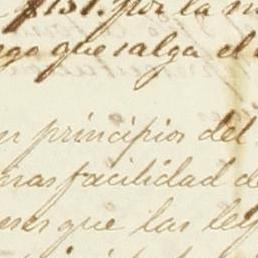 por la
que salga el
principios del
mas facilidad de
que las ley